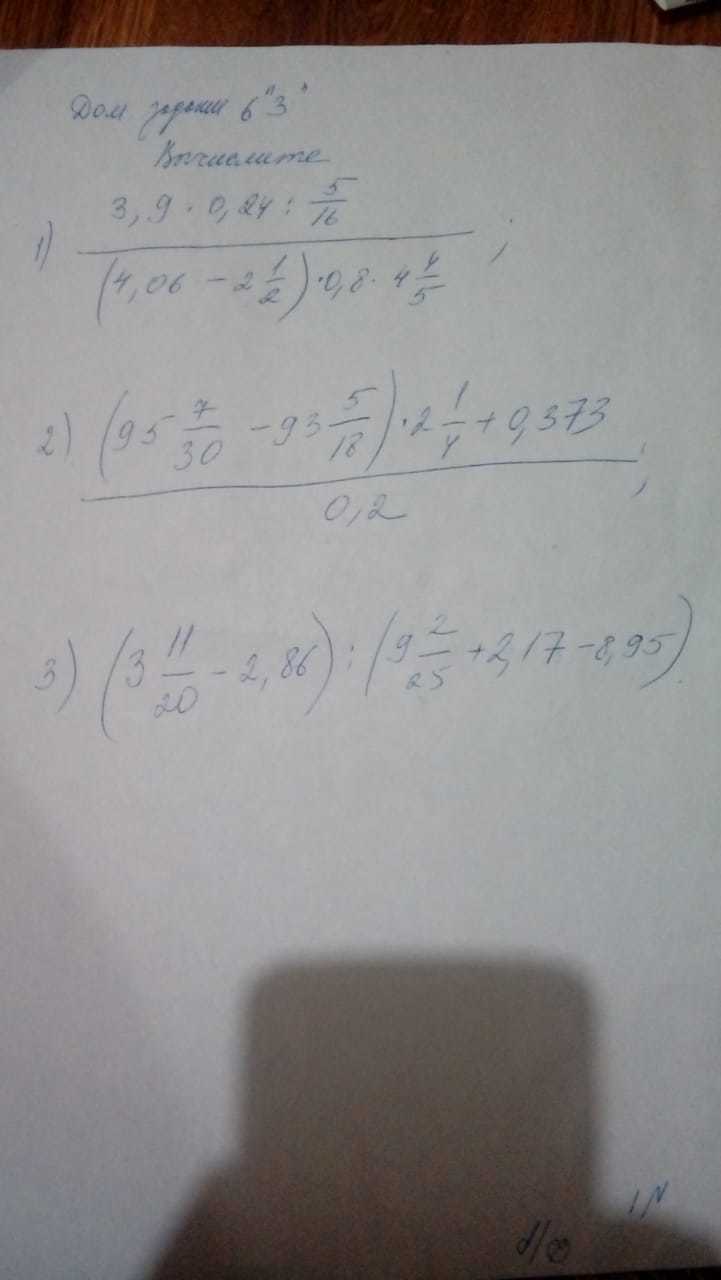 Дом задание 6 "З"
Вычислите
1) (3,9 · 0,24 : 5/16) / ((4,06 - 2 1/2) · 0,8 · 4 4/5) ;
2) ((95 7/30 - 93 5/18) · 2 1/4 + 0,373) / 0,2 ;
3) (3 11/20 - 2,86) : (9 2/25 + 2,17 - 8,95).